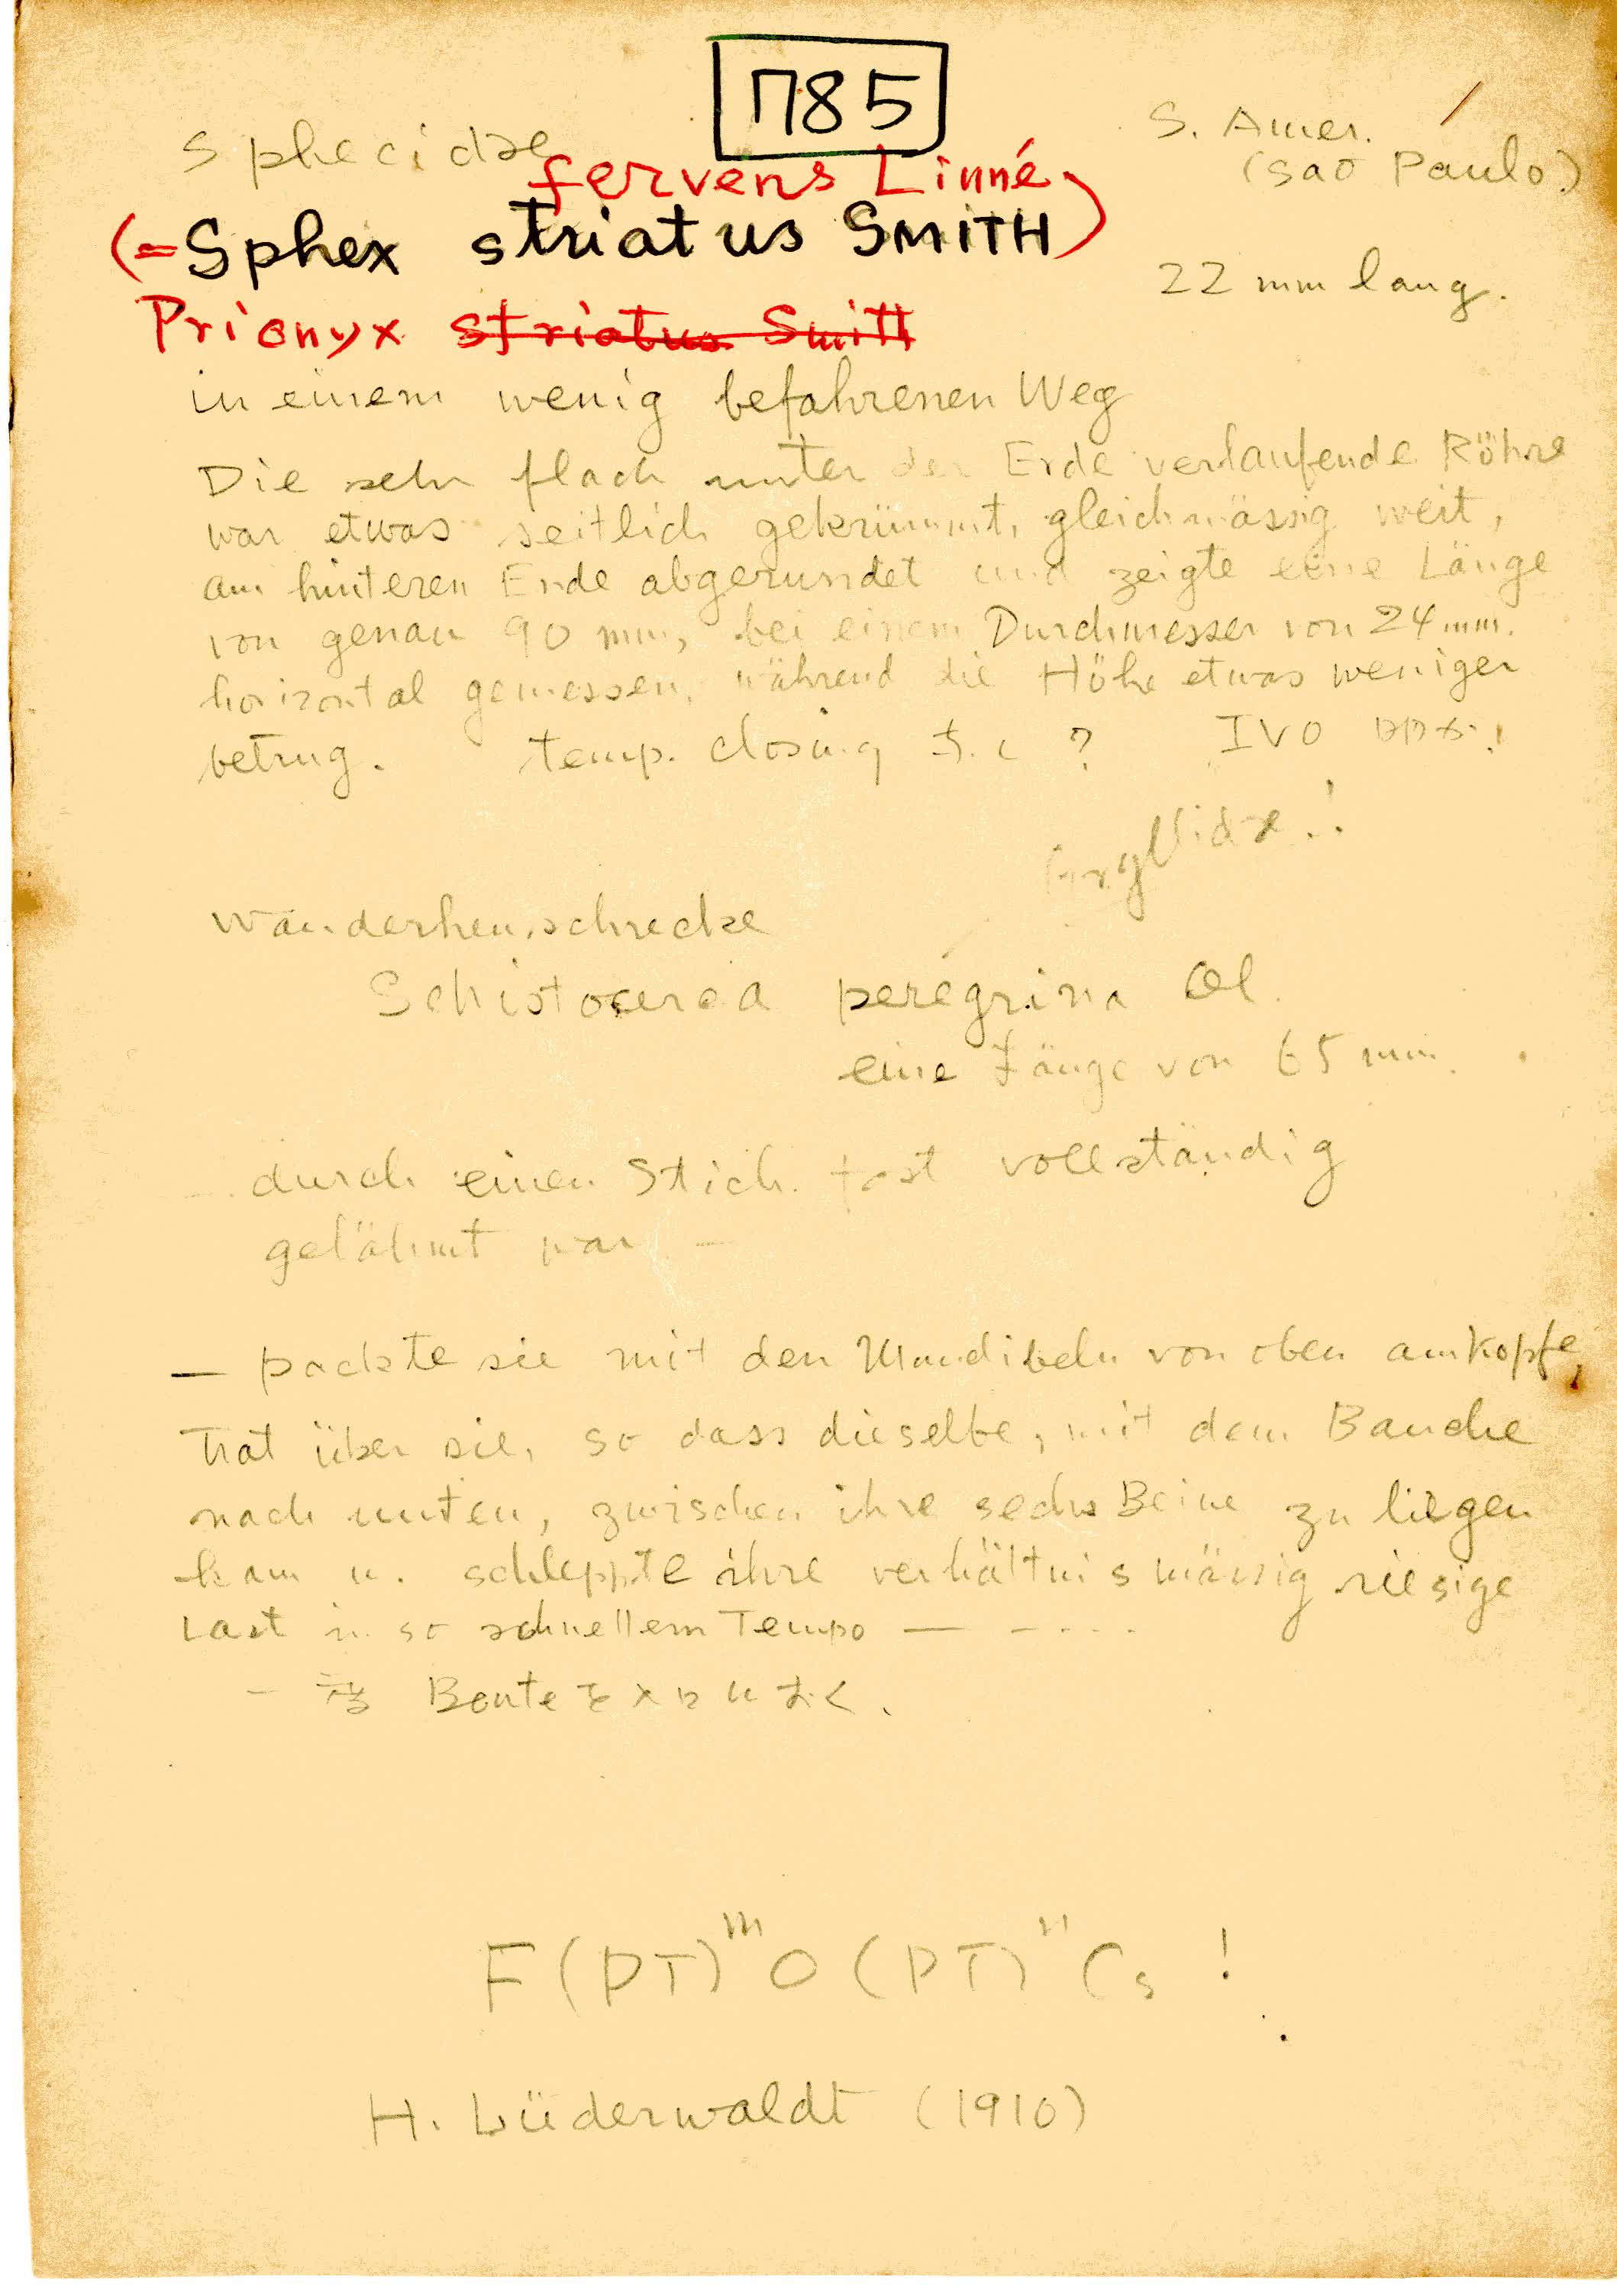 1785
Sphecidae
S. Amer.
(Sao Paulo)
fervens Linné
(=Sphex striatus SMITH)
22 mm lang.
Prionyx striatus Smith
in einem wenig befahrenen Weg
Die sehr flach unter der Erde verlaufende Röhre
war etwas seitlich gekrümmt, gleichmässig weit,
am hinteren Ende abgerundet und zeigte eine Länge
von genau 90 mm, bei einem Durchmesser von 24 mm.
horizontal gemessen, während die Höhe etwas weniger
betrug. temp. closing ? IVO
Gryllidae!
Wanderheuschrecke
Schistocerca peregrina Ol.
eine Länge von 65 mm.
durch einen Stich fast vollständig
gelähmt war –
— packte sie mit den Mandibeln von oben am Kopfe,
trat über sie, so dass dieselbe, mit dem Bauche
nach unten, zwischen ihre sechs Beine zu liegen
kam u. schleppte ihre verhältnismässig riesige
Last in so schnellem Tempo — – . . . .
Beute
F(PT)ᵐO(PT)ⁿCs !
H. Lüderwaldt (1910)